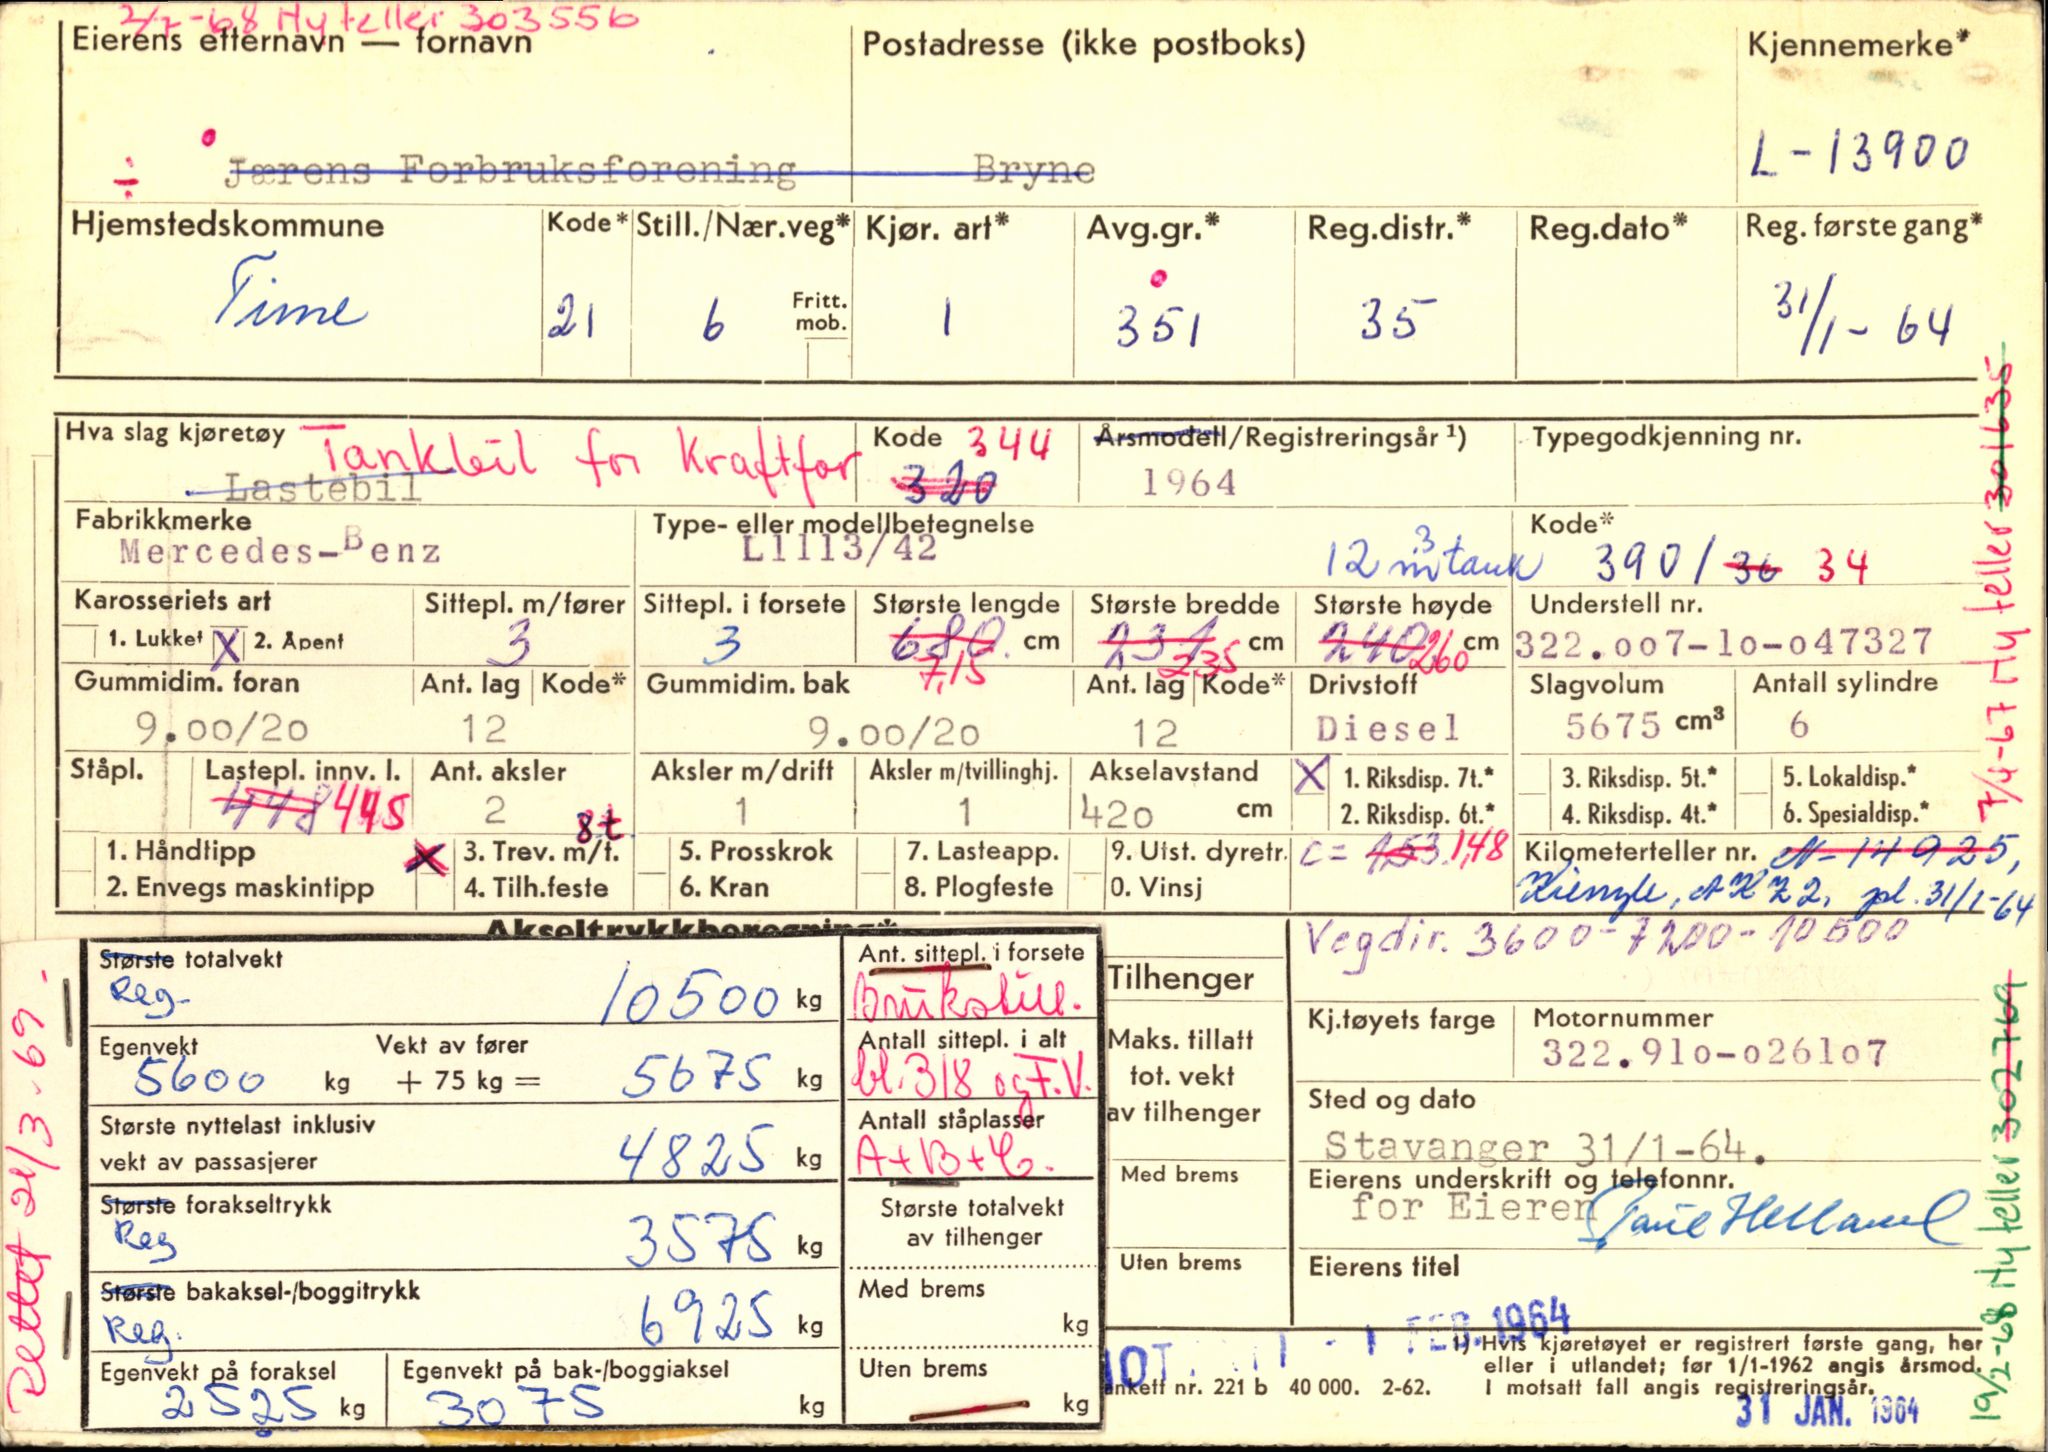 2/7-68 Ny teller 303556
Eierens efternavn — fornavn Postadresse (ikke postboks) Kjennemerke*
÷ Jærens Forbruksforening Bryne L-13900
Hjemstedskommune Kode* Still./Nær.veg* Kjør. art* Avg.gr.* Reg.distr.* Reg.dato* Reg. første gang*
Time 21 6 Fritt. mob. 1 351 35 31/1-64
Hva slag kjøretøy Tankbil for Kraftfor Kode 344 Årsmodell/Registreringsår ¹) Typegodkjenning nr.
Lastebil 320 1964
Fabrikkmerke Type- eller modellbetegnelse Kode*
Mercedes-Benz L1113/42 12 m³ tank 390/36 34
Karosseriets art Sittepl. m/fører Sittepl. i forsete Største lengde Største bredde Største høyde Understell nr.
1. Lukket X 2. Åpent 3 3 680 cm 231 cm 240 260 cm 322.007-10-047327
7,15 235
Gummidim. foran Ant. lag Kode* Gummidim. bak Ant. lag Kode* Drivstoff Slagvolum Antall sylindre
9.00/20 12 9.00/20 12 Diesel 5675 cm³ 6
Ståpl. Lastepl. innv. l. Ant. aksler Aksler m/drift Aksler m/tvillinghj. Akselavstand X 1. Riksdisp. 7t.* 3. Riksdisp. 5t.* 5. Lokaldisp.*
448 445 2 1 1 420 cm 2. Riksdisp. 6t.* 4. Riksdisp. 4t.* 6. Spesialdisp.*
8t.
1. Håndtipp X 3. Trev. m/t. 5. Prosskrok 7. Lasteapp. 9. Utst. dyretr. C = 153 1,48 Kilometerteller nr. N-14925,
2. Envegs maskintipp 4. Tilh.feste 6. Kran 8. Plogfeste 0. Vinsj Kienzle, pl. 31/1-64
Akseltrykkberegning*
Vegdir. 3600-7200-10500
Største totalvekt Ant. sittepl. i forsete
Reg. 10500 kg Brukstill.
Egenvekt Vekt av fører Antall sittepl. i alt
5600 kg + 75 kg = 5675 kg bl. 318 og F.V.
Største nyttelast inklusiv Antall ståplasser
vekt av passasjerer 4825 kg A+B+C.
Største forakseltrykk Største totalvekt
Reg 3575 kg av tilhenger
Største bakaksel-/boggitrykk Med brems
Reg. 6925 kg kg
Egenvekt på foraksel Egenvekt på bak-/boggiaksel Uten brems
2525 kg 3075 kg kg
Tilhenger
Maks. tillatt
tot. vekt
av tilhenger
Med brems
Uten brems
Kj.tøyets farge Motornummer
322.910-026107
Sted og dato
Stavanger 31/1-64.
Eierens underskrift og telefonnr.
for Eieren Helland
Eierens titel
1 FEB. 1964
1) Hvis kjøretøyet er registrert første gang, her
eller i utlandet; før 1/1-1962 angis årsmod.
ankett nr. 221 b 40 000. 2-62. I motsatt fall angis registreringsår.
31 JAN. 1964
Rettet 24/3.69.
7/4-67 Ny teller 301635
19/2-68 Ny teller 302769